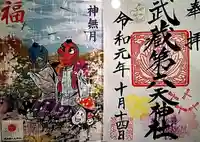 福
神無月
奉拝
武蔵第六天神社
令和元年十月十四日